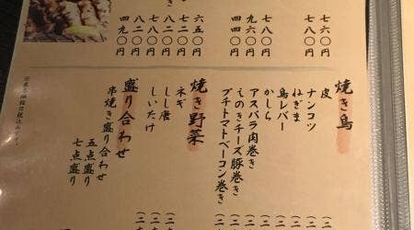 七六〇円
七八〇円
七八〇円
九六〇円
四九〇円
六五〇円
七二〇円
七八〇円
八二〇円
焼き鳥
皮
ナンコツ
ねぎま
鳥レバー
かしら
アスパラ肉巻き
えのきチーズ豚巻き
プチトマトベーコン巻き
焼き野菜
ネギ
しし唐
しいたけ
盛り合わせ
串焼き盛り合わせ
五点盛り
七点盛り